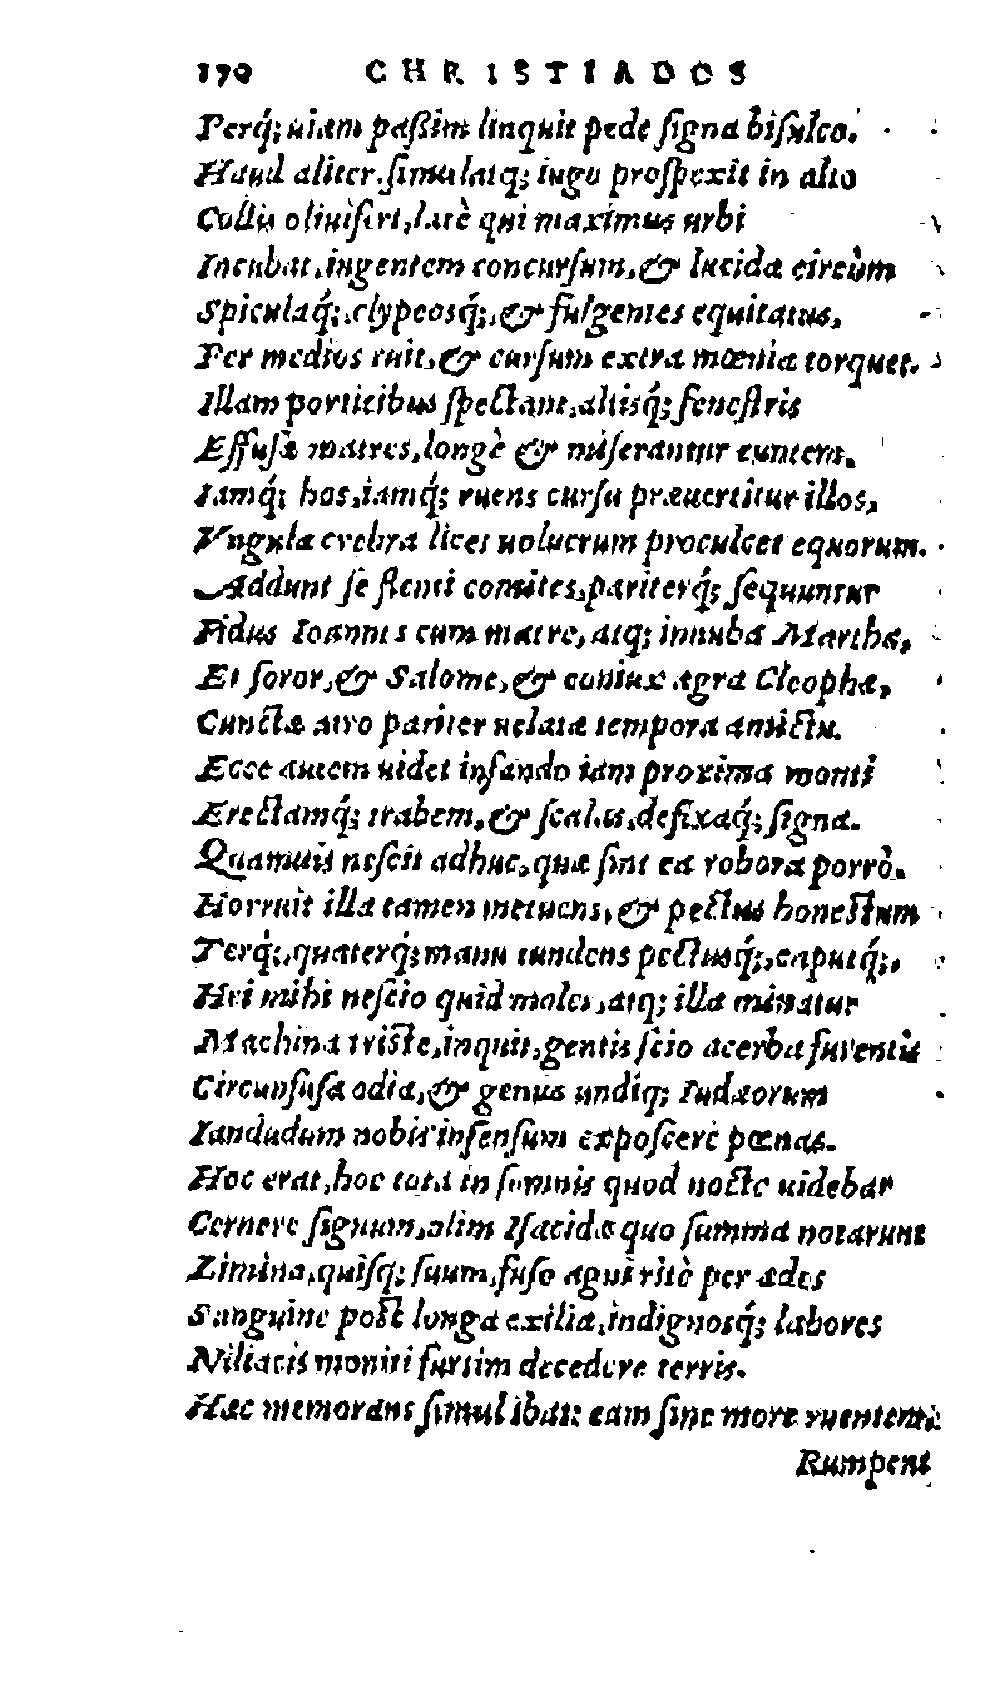 170 CHRISTIADOS
Perq́; uiam paßim linquit pede ſigna biſulco.
Haud aliter. ſimulatq; iugo proſpexit in alto
Collis oliuiferi, latè qui maximus urbi
Incubat, ingentem concurſum, & lucida circùm
Spiculaq́;, clypeosq́;, & fulgentes equitatus,
Per medios ruit, & curſum extra mœnia torquet.
Illam porticibus ſpectant, altisq́; feneſtris
Effuſæ matres, longè & miſerantur euntem.
Iamq́; hos, iamq́; ruens curſu præuertitur illos,
Vngula crebra licet uolucrum proculcet equorum.
Addunt ſe flenti comites, pariterq́; ſequuntur
Fidus Ioannes cum matre, atq; innuba Martha,
Et ſoror, & Salome, & coniux ægra Cleophæ,
Cunctæ atro pariter uelatæ tempora amictu.
Ecce autem uidet infando iam proxima monti
Erectamq́; trabem, & ſcalas, defixaq́; ſigna.
Quamuis neſcit adhuc, quæ ſint ea robora porrò.
Horruit illa tamen metuens, & pectus honeſtum
Terq́;, quaterq́; manu tundens pectusq́;, caputq́;,
Hei mihi neſcio quid moles, atq; illa minatur
Machina triſte, inquit, gentis ſcio acerba furentis
Circunfuſa odia, & genus undiq; Iudæorum
Iandudum nobis infenſum expoſcere pœnas.
Hoc erat, hoc tota in ſomnis quod nocte uidebar
Cernere ſignum, olim Iſacidæ quo ſumma notarunt
Limina, quiſq; ſuum, fuſo agni ritè per ædes
Sanguine poſt longa exilia, indignosq́; labores
Niliacis moniti furtim decedere terris.
Hæc memorans ſimul ibat: eam ſine more ruentem
Rumpent